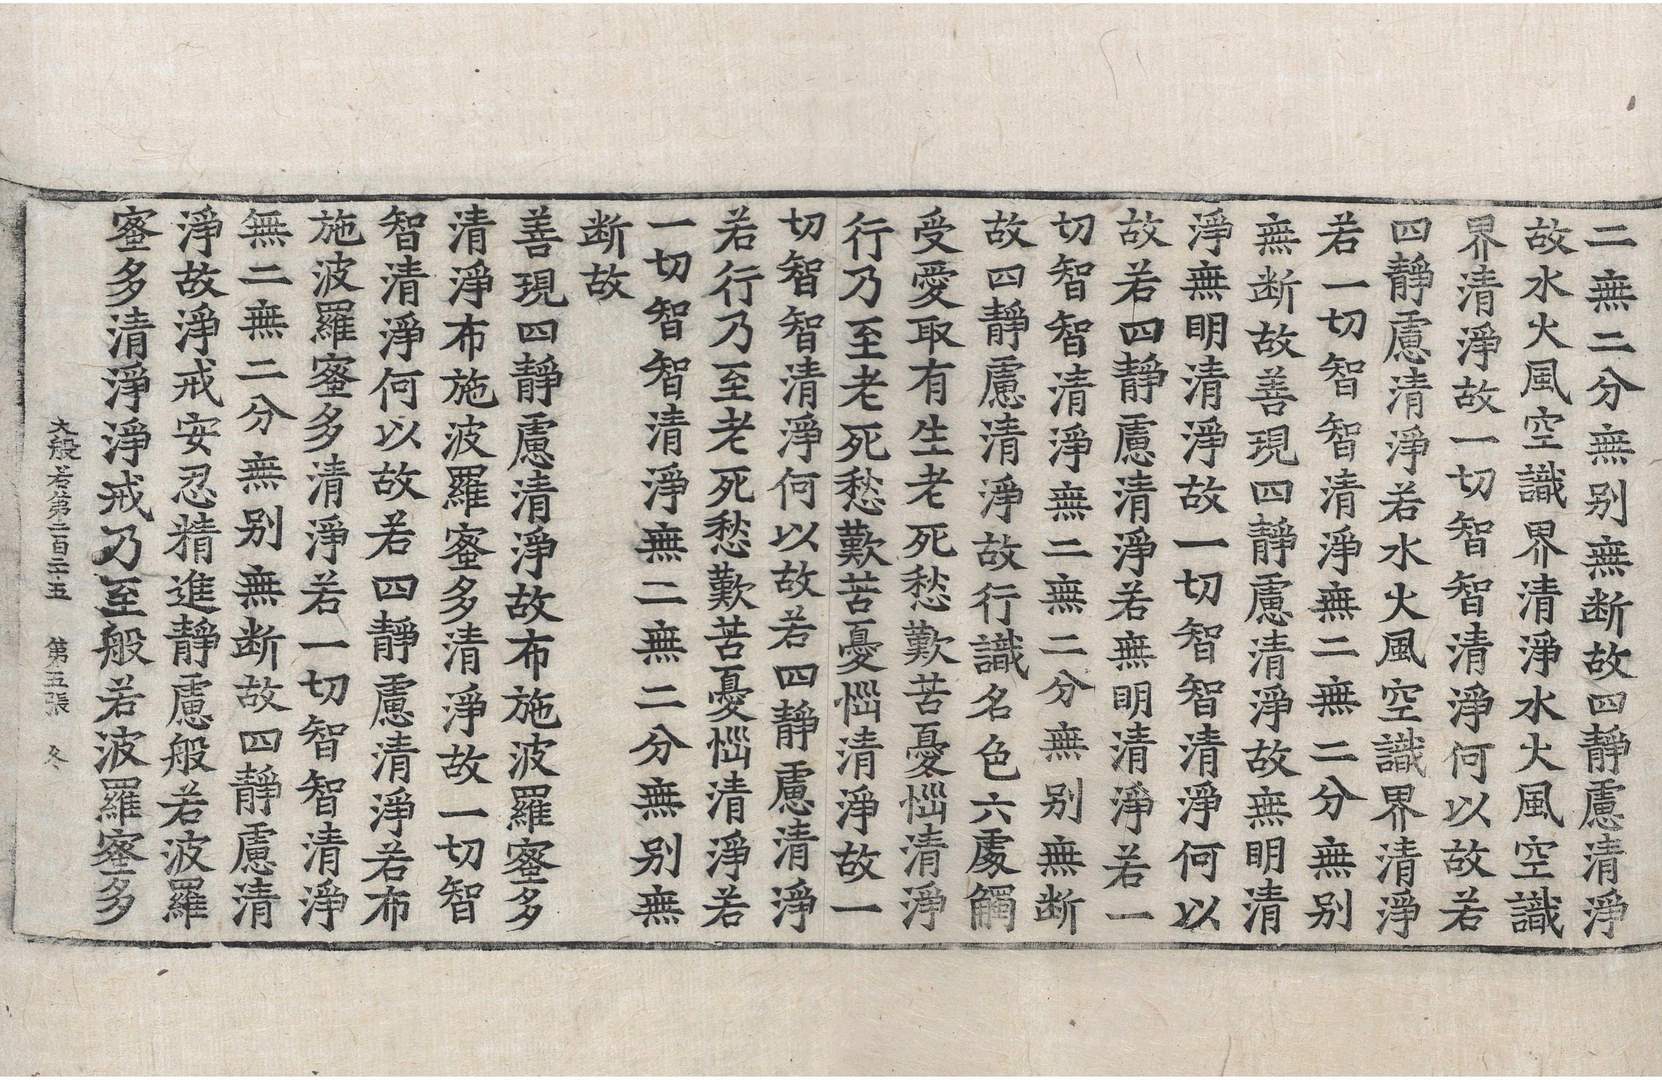 二無二分無别無断故四靜慮清淨
故水火風空識界清淨水火風空識
界清淨故一切智智清淨何以故若
四靜慮清淨若水火風空識界清淨
若一切智智清淨無二無二分無别
無断故善現四靜慮清淨故無明清
淨無明清淨故一切智智清淨何以
故若四靜慮清淨若無明清淨若一
切智智清淨無二無二分無别無断
故四靜慮清淨故行識名色六處觸
受愛取有生老死愁歎苦憂惱清淨
行乃至老死愁歎苦憂惱清淨故一
切智智清淨何以故若四靜慮清淨
若行乃至老死愁歎苦憂惱清淨若
一切智智清淨無二無二分無别無
断故
善現四靜慮清淨故布施波羅蜜多
清淨布施波羅蜜多清淨故一切智
智清淨何以故若四靜慮清淨若布
施波羅蜜多清淨若一切智智清淨
無二無二分無别無断故四靜慮清
淨故淨戒安忍精進靜慮般若波羅
蜜多清淨淨戒乃至般若波羅蜜多
大般若第二百二十五 第五張 冬